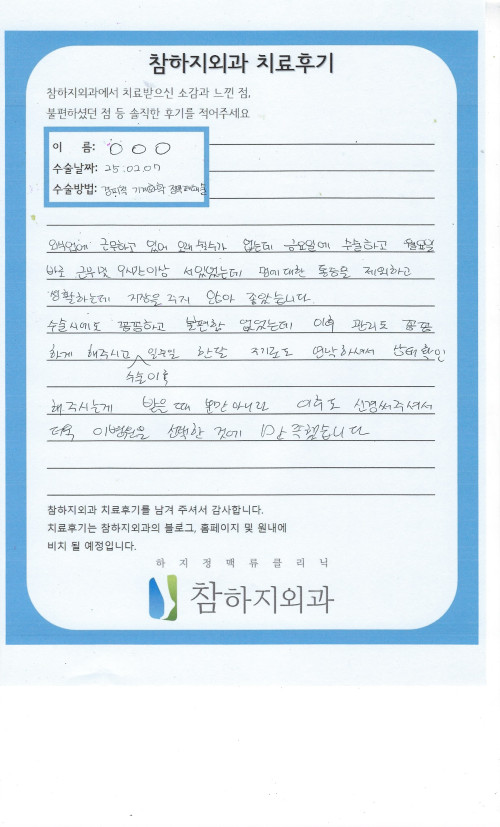 참하지외과 치료후기
참하지외과에서 치료받으신 소감과 느낀 점,
불편하셨던 점 등 솔직한 후기를 적어주세요
이 름: ○ ○ ○
수술날짜: 25.02.07
수술방법: 기계화학 정맥폐쇄술
근무하고 있어 오래 쉴수가 없는데 금요일에 수술하고 월요일
바로 근무 및 9시간이상 서있었는데 멍에대한 통증을 제외하고
생활하는데 지장을 주지 않아 좋았습니다.
수술시에도 꼼꼼하고 불편함 없었는데 이후 관리도 꼼꼼
하게 해주시고 일주일 한달 주기로도 연락하셔서 상태확인
수술이후
해주시는게 받은 때 뿐만 아니라 이후도 신경써주셔서
더욱 이병원을 선택한 것에 만족했습니다
참하지외과 치료후기를 남겨 주셔서 감사합니다.
치료후기는 참하지외과의 블로그, 홈페이지 및 원내에
비치 될 예정입니다.
하지정맥류클리닉
참하지외과